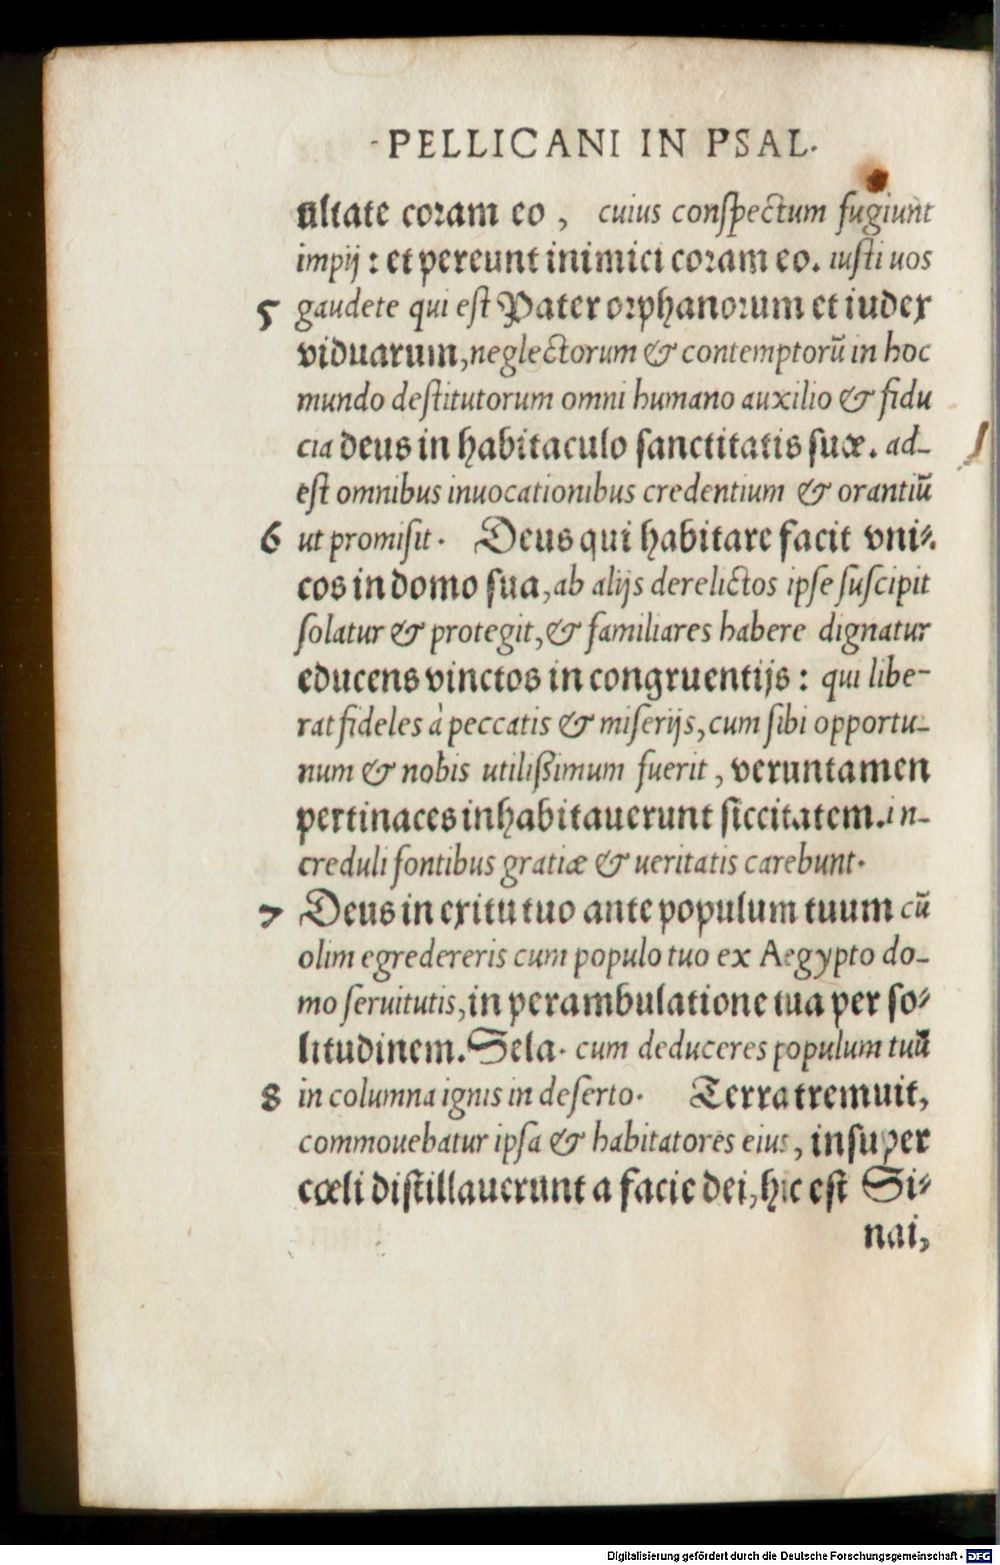 -PELLICANI IN PSAL.
ultate coram eo, cuius conſpectum fugiunt
impij: et pereunt inimici coram eo. iuſti uos
5 gaudete qui eſt Pater orphanorum et iudex
viduarum, neglectorum & contemptorū in hoc
mundo deſtitutorum omni humano auxilio & fidu
cia deus in habitaculo ſanctitatis ſuæ. ad-
eſt omnibus inuocationibus credentium & orantiū
6 ut promiſit. Deus qui habitare facit vni⸗
cos in domo ſua, ab alijs derelictos ipſe ſuſcipit
ſolatur & protegit, & familiares habere dignatur
educens vinctos in congruentijs: qui libe-
rat fideles à peccatis & miſerijs, cum ſibi opportu-
num & nobis utilißimum fuerit, veruntamen
pertinaces inhabitauerunt ſiccitatem. in-
creduli fontibus gratiæ & ueritatis carebunt.
7 Deus in exitu tuo ante populum tuum cū
olim egredereris cum populo tuo ex Aegypto do-
mo ſeruitutis, in perambulatione tua per ſo⸗
litudinem. Sela. cum deduceres populum tuū
8 in columna ignis in deſerto. Terra tremuit,
commouebatur ipſa & habitatores eius, inſuper
cœli diſtillauerunt a facie dei, hic eſt Si⸗
nai,
Digitalisierung gefördert durch die Deutsche Forschungsgemeinschaft - DFG